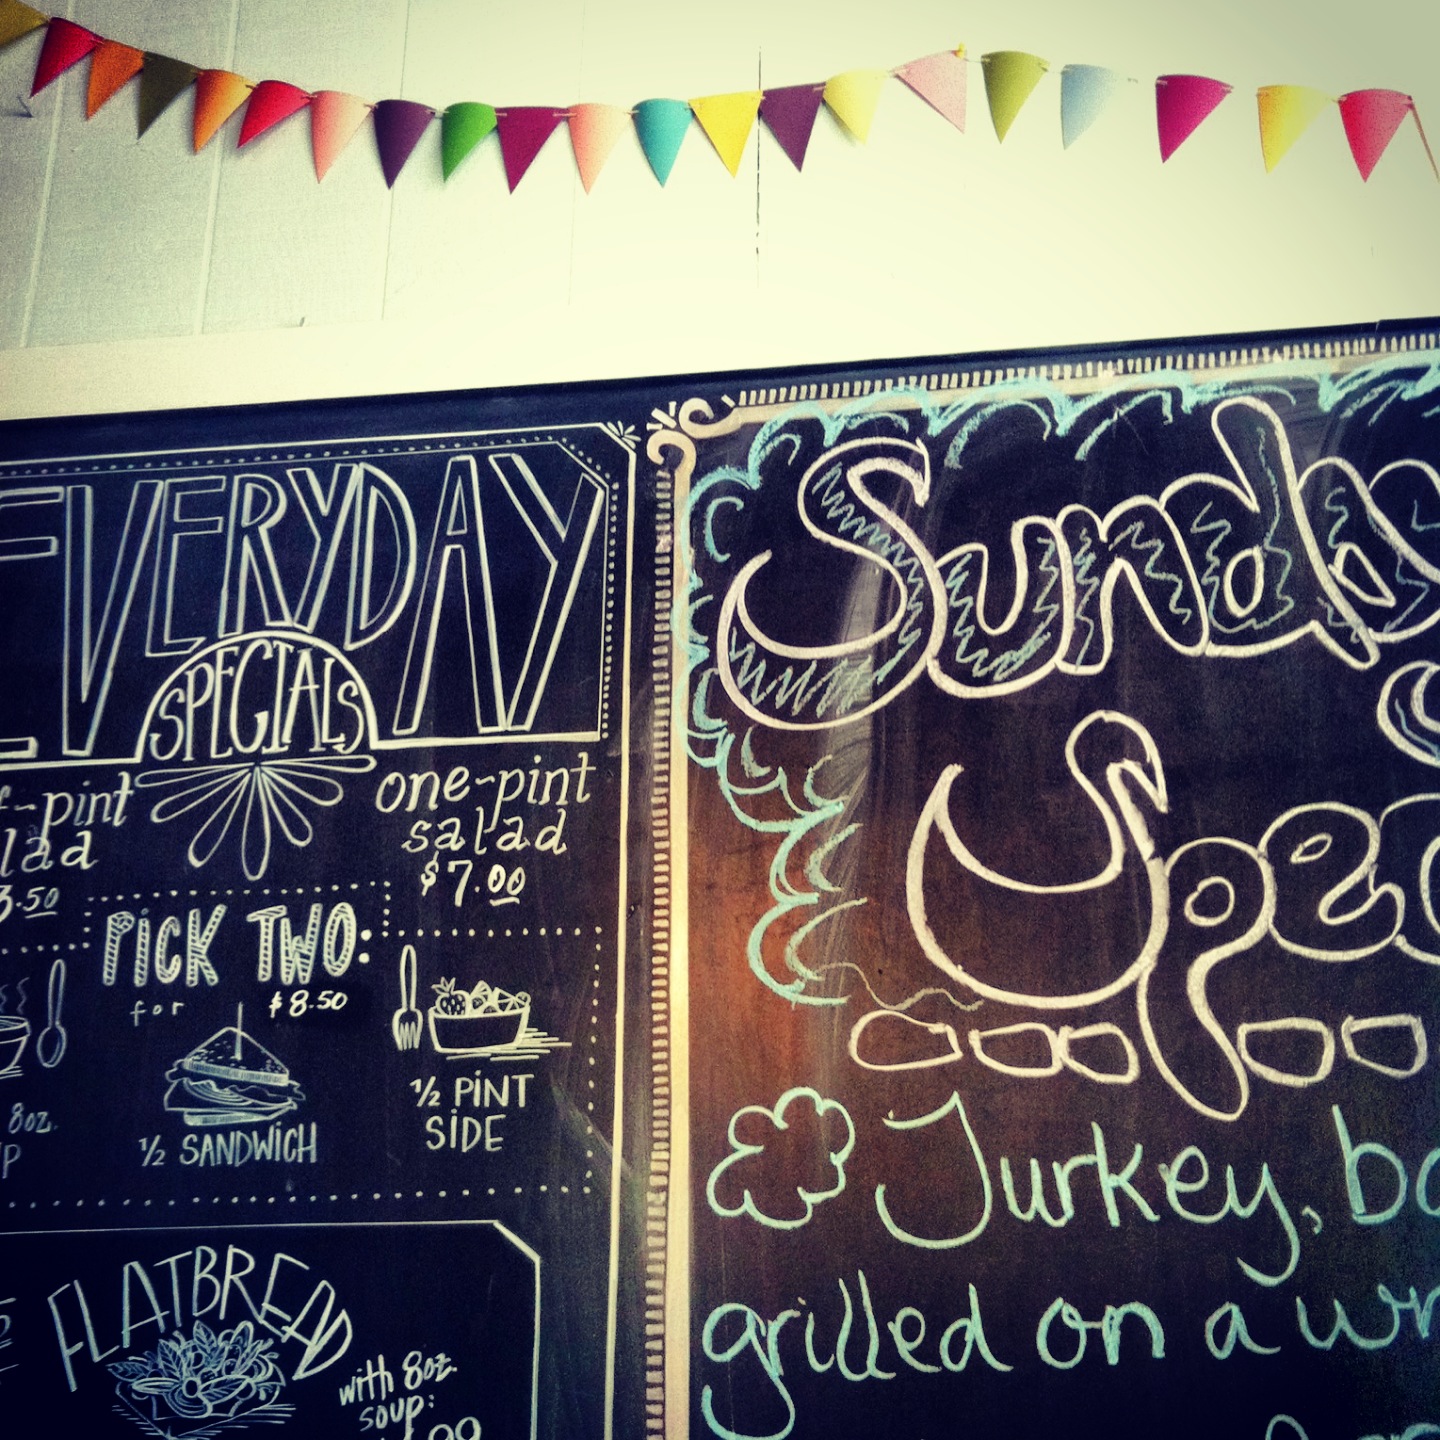 EVERYDAY
SPECIALS
one-pint
salad
$7.00
PICK TWO:
for $8.50
8oz.
½ SANDWICH
½ PINT
SIDE
FLATBREAD
with 8oz.
soup:
Sunday
Spec
Turkey,
grilled on a